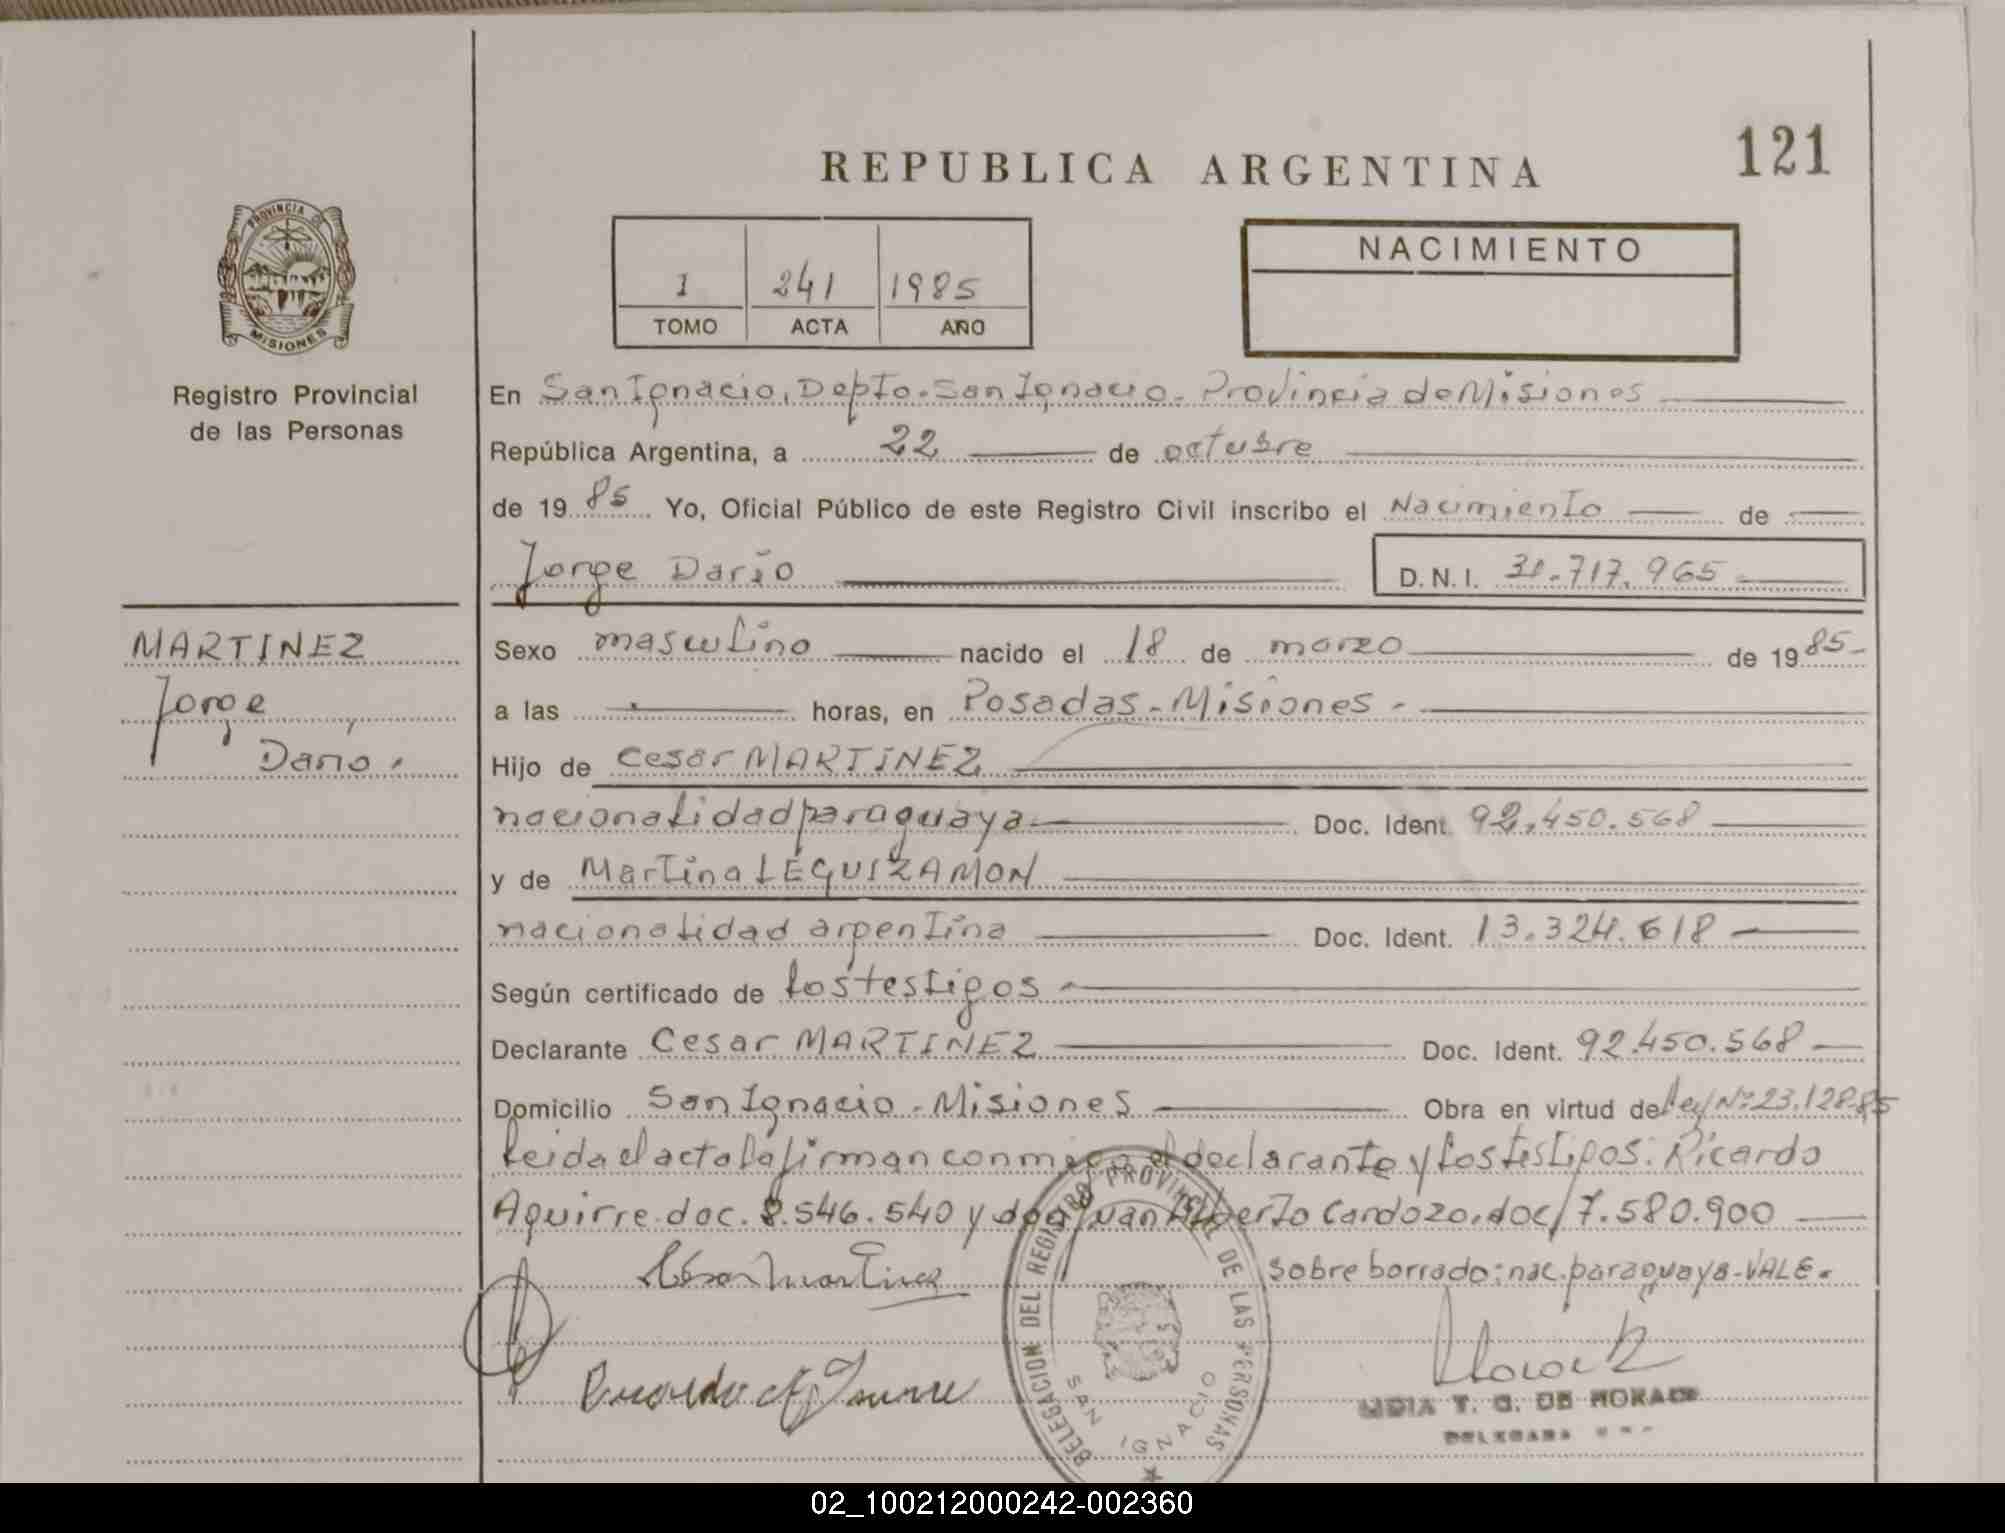 REPUBLICA ARGENTINA
121
PROVINCIA DE
MISIONES
Registro Provincial
de las Personas
1 241 1985
TOMO ACTA AÑO
NACIMIENTO
En San Ignacio, Depto. San Ignacio - Provincia de Misiones
República Argentina, a 22 de octubre
de 1985 Yo, Oficial Público de este Registro Civil inscribo el Nacimiento de
Jorge Darío
D.N.I. 31.717.965
MARTINEZ
Jorge
Darío.
Sexo masculino nacido el 18 de marzo de 1985-
a las horas, en Posadas - Misiones -
Hijo de Cesar MARTINEZ
nacionalidad paraguaya Doc. Ident. 92.450.568
y de Martina LEGUIZAMON
nacionalidad argentina Doc. Ident. 13.324.618
Según certificado de los testigos
Declarante Cesar MARTINEZ Doc. Ident. 92.450.568
Domicilio San Ignacio - Misiones Obra en virtud de ley Nº 23.128-85
leida el acta la firman conmigo el declarante y los testigos: Ricardo
Aguirre. doc. 8.546.540 y don Juan Alberto Cardozo. doc/ 7.580.900
César Martinez
sobre borrado: nac. paraguaya - VALE.
Ricardo Aguirre
DELEGACION DEL REGISTRO PROVINCIAL DE LAS PERSONAS
SAN IGNACIO
LIDIA T. G. DE
02_100212000242-002360